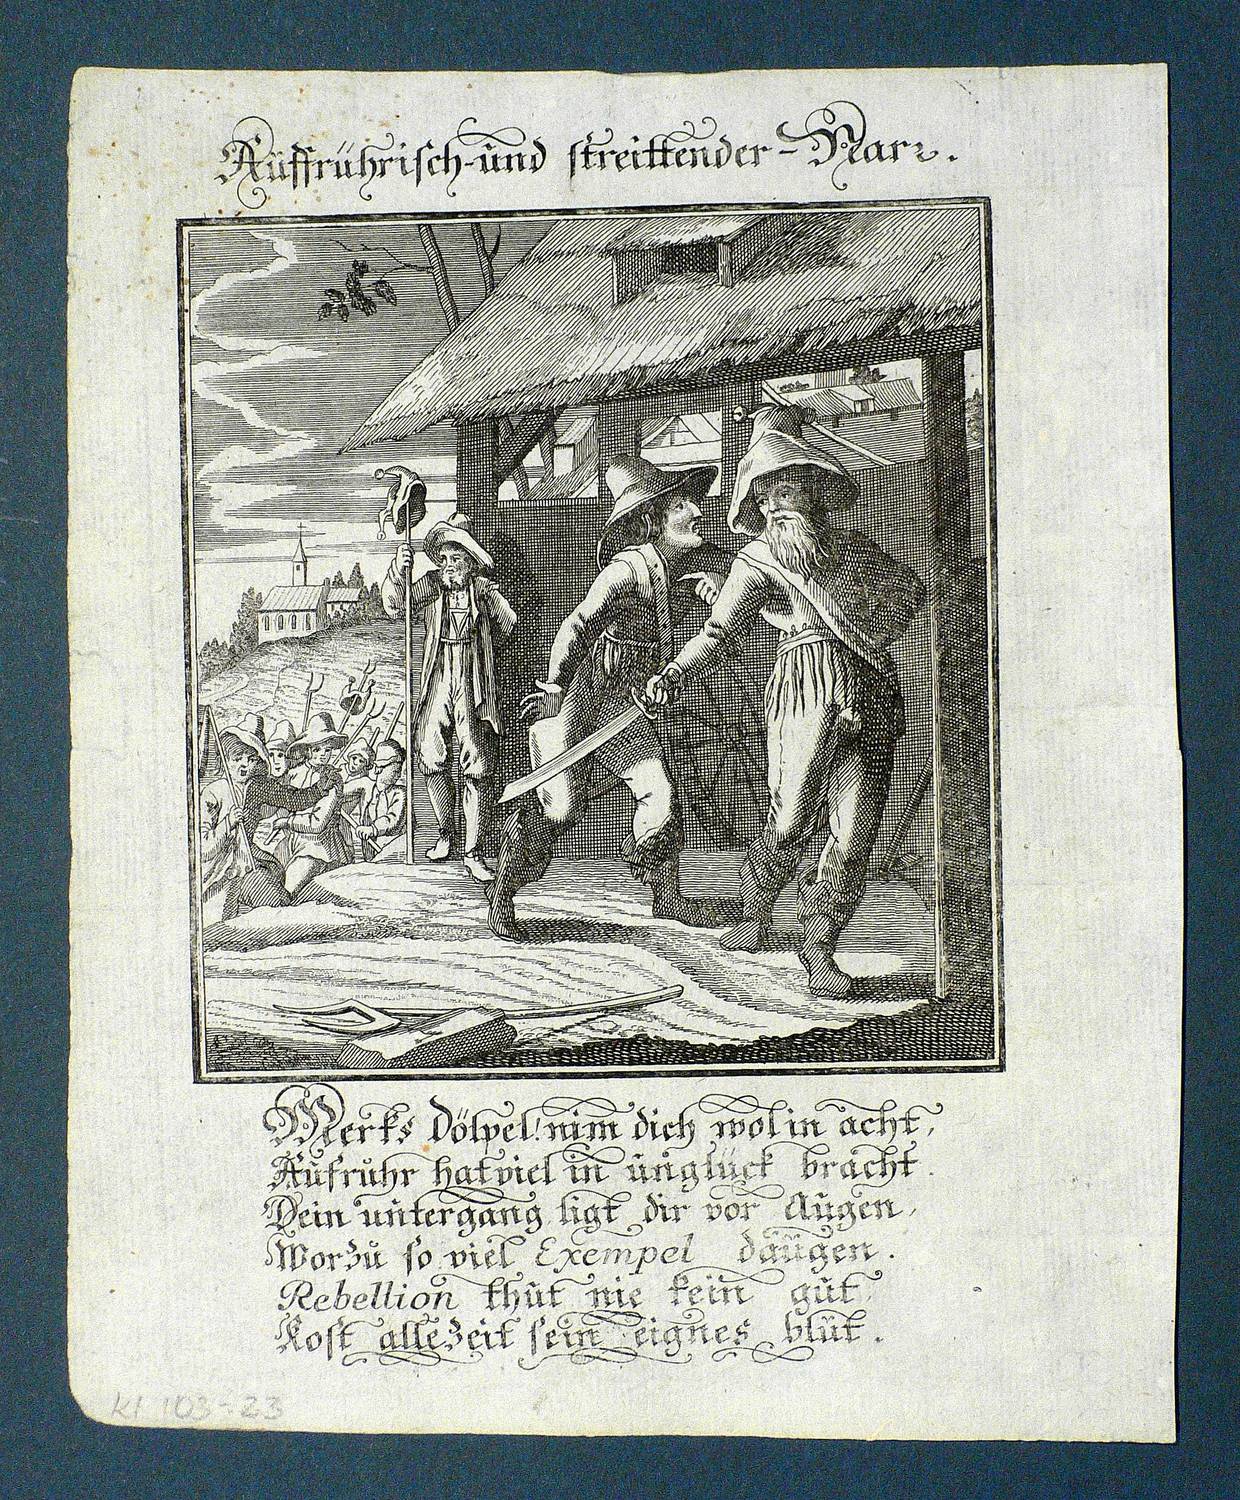 Auffrührisch-und streittender-Narr.
Merks Dölpel! nim dich wol in acht,
Aufruhr hat viel in unglück bracht.
Dein untergang ligt dir vor Augen,
Worzu so viel Exempel daugen.
Rebellion thut nie kein gut,
Kost allezeit sein eignes blut.
Kl 103-23